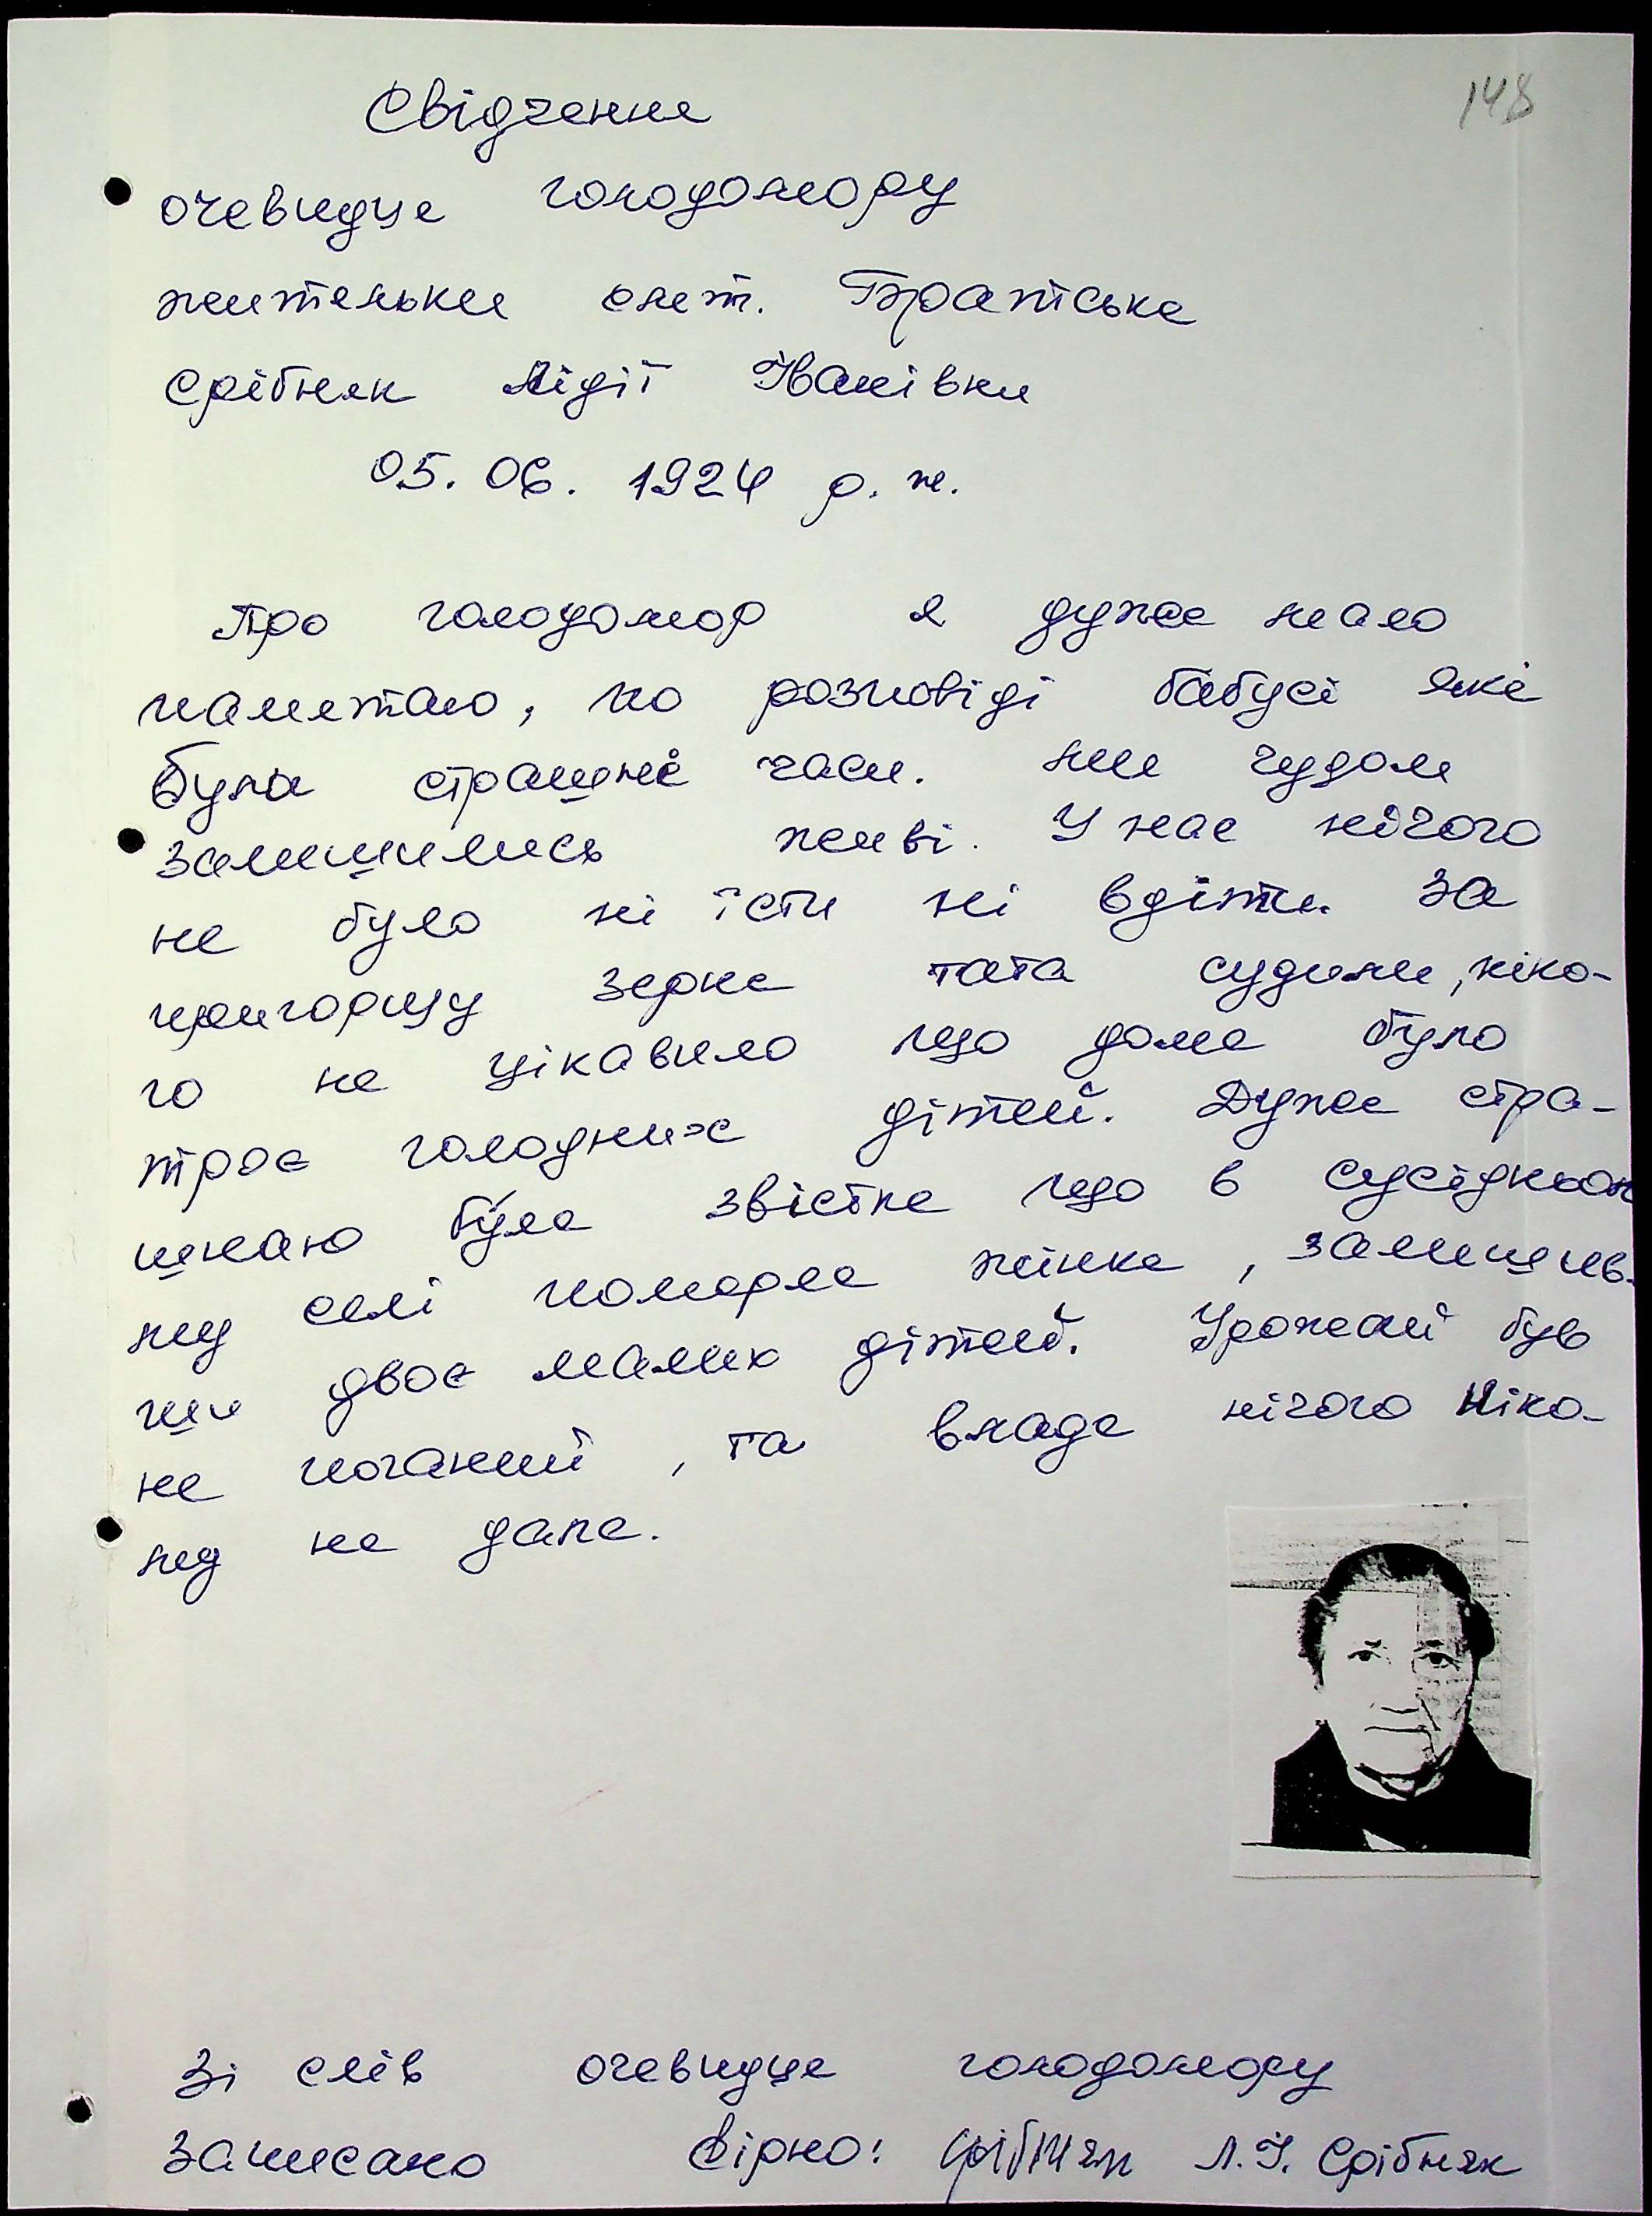 148
Свідчення
очевидця голодомору
жительки смт. Братське
Срібняк Лідії Іванівни
05. 06. 1924 р. н.
Про голодомор я дуже мало
памятаю, по розповіді бабусі які
були страшні часи. ми чудом
залишились живі. У нас нічого
не було ні їсти ні вдіти. За
пригорщу зерна тата судили, ніко-
го не цікавило що дома було
троє голодних дітей. Дуже стра-
шною була звістка що в сусідньом
му селі померла жінка, залишив-
ши двоє малих дітей. Урожай був
не поганий, та влада нічого ніко-
му не дала.
Зі слів очевидця голодомору
записано вірно: Срібняк Л. І. Срібняк